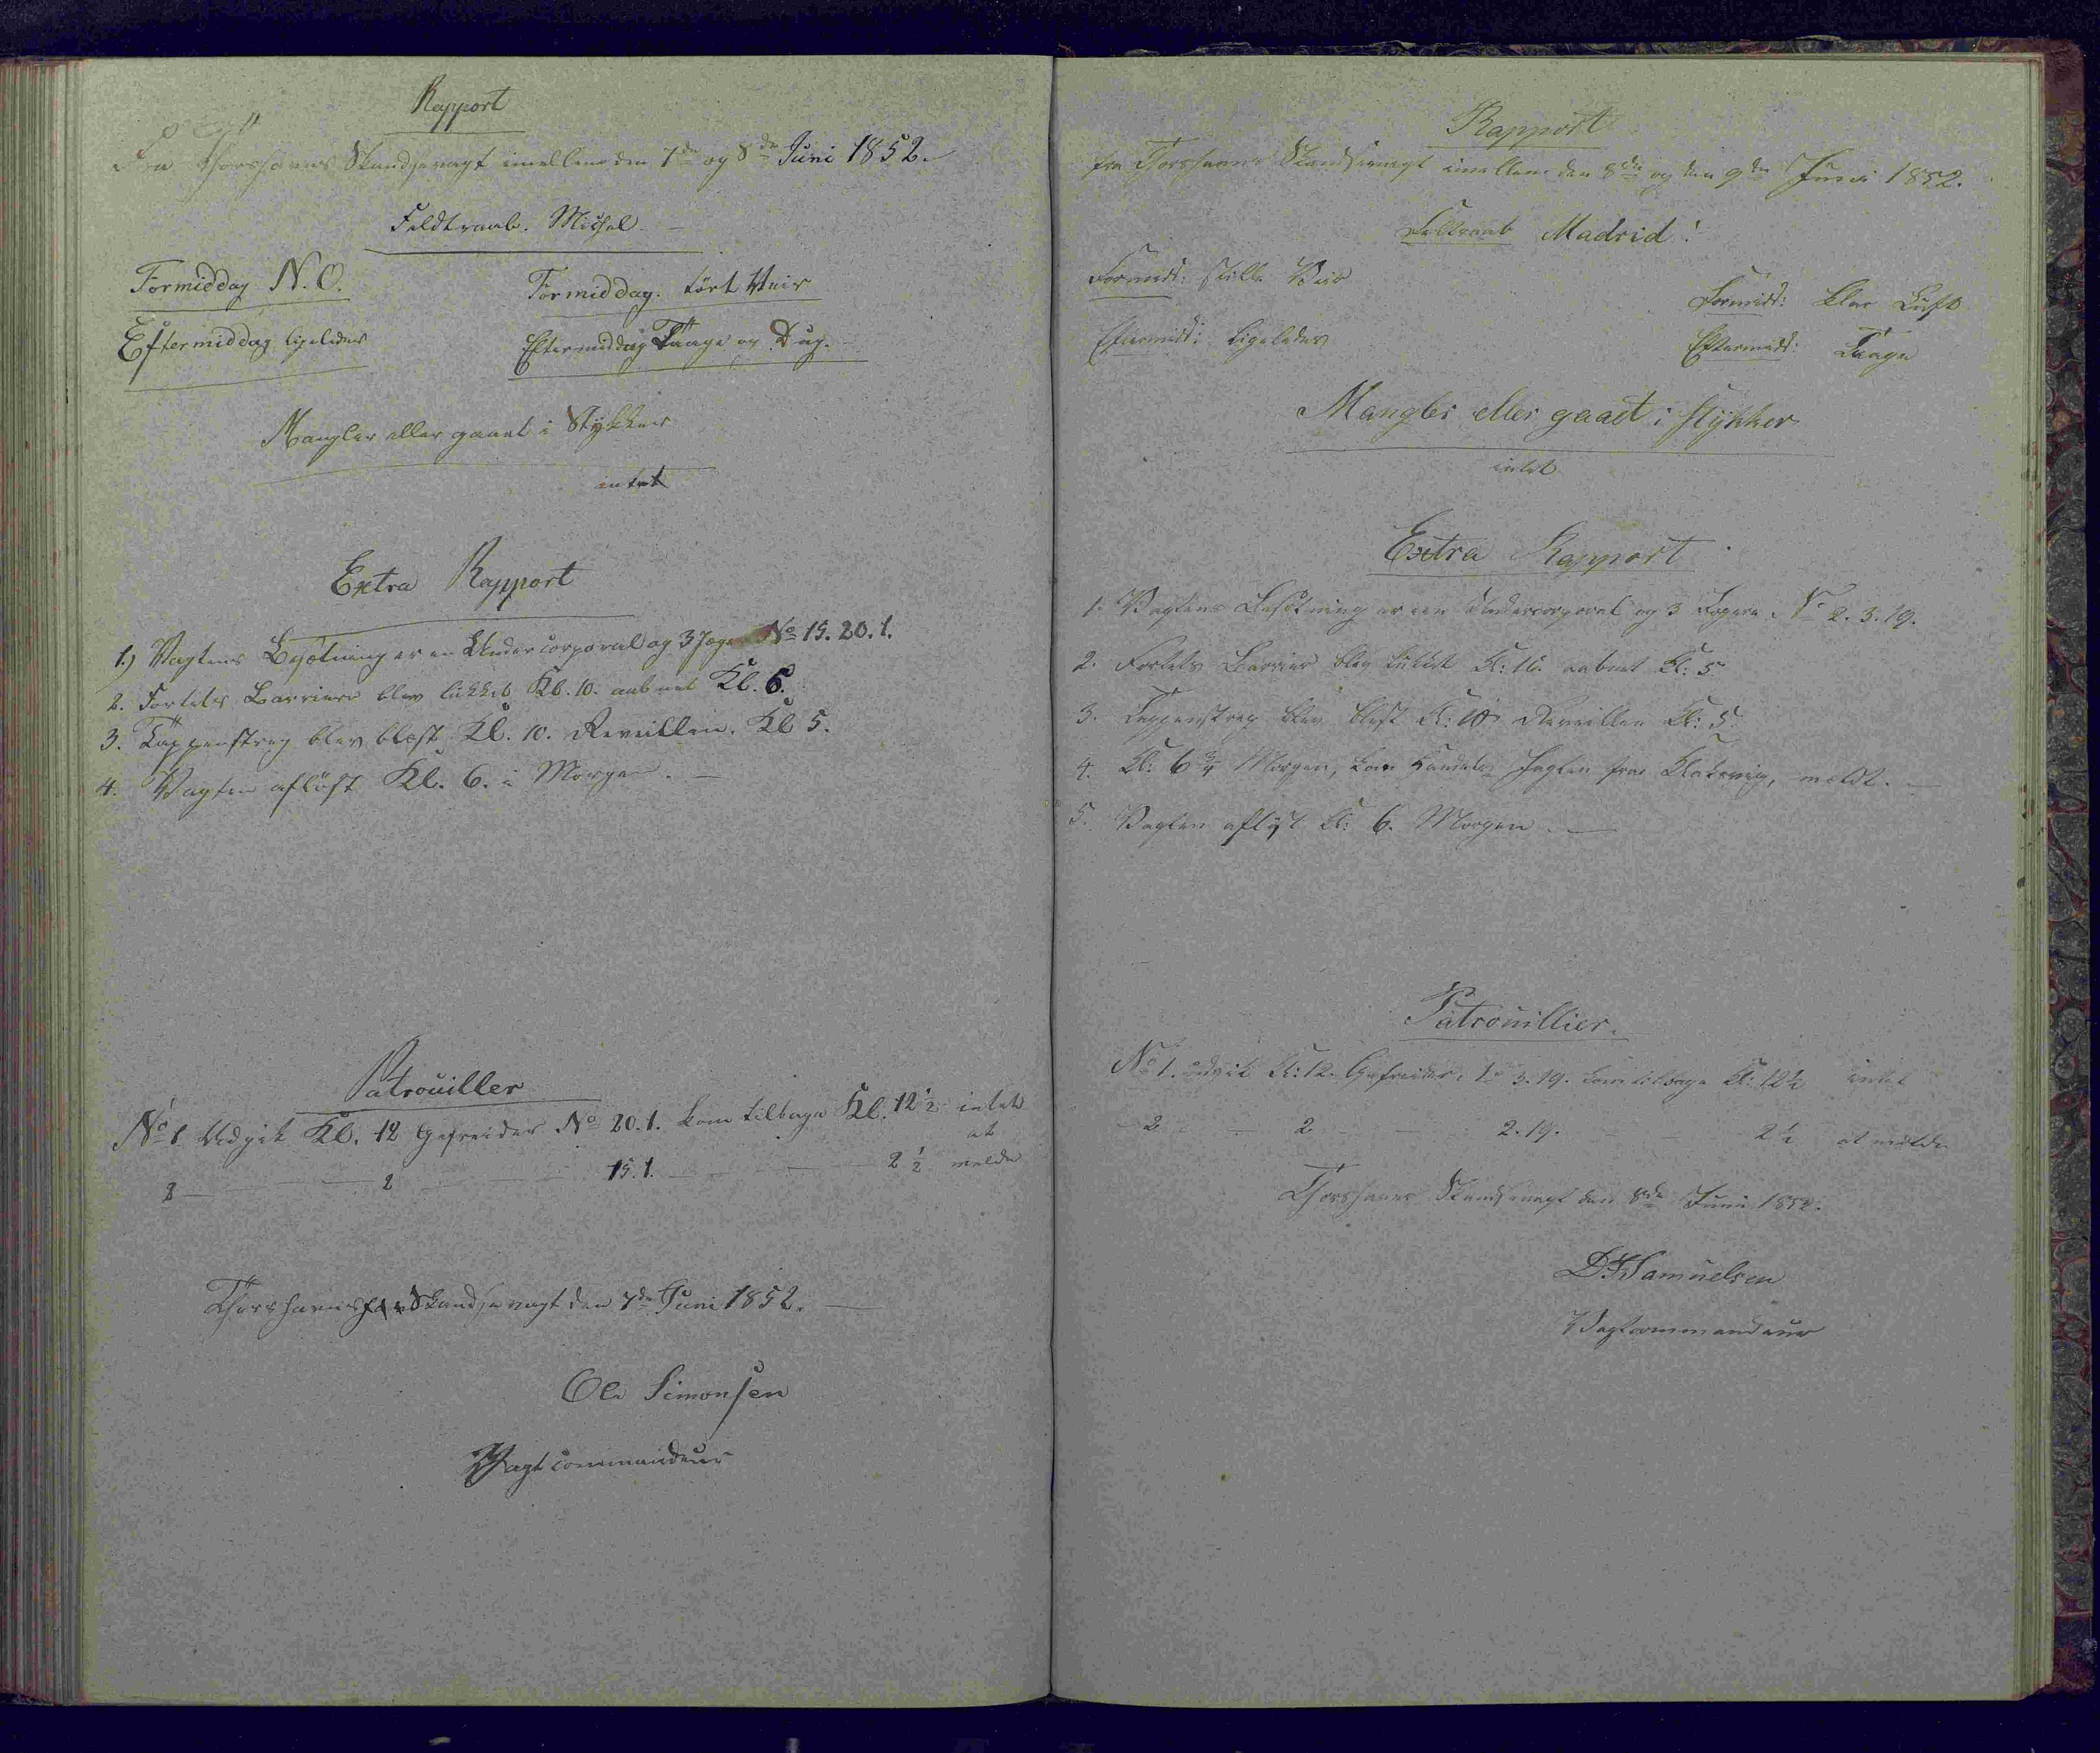 Rapport
Fra Thorshavns Skandsevagt imellem den 7de og 8de Juni 1852.
Feldtraab. Michel.
Formiddag N.O.
Formiddag. tört Veir
Eftermiddag ligeledes
Eftermiddag Taage og Dug.
Mangler eller gaaet i Stykker
intet
Extra Rapport
1.) Vagtens Besætning er en Undercorporal og 3 Jæger No 15. 20. 1.
2. Fortets Barriere blev lukket Kl. 10. aabnet Kl. 6.
3. Tappenstreg blev blæst Kl. 10. Reveillen. Kl 5.
4. Vagten aflöst Kl. 6. i Morgen. —
Patrouiller
No 1 Udgik Kl. 12 Gefreider No 20. 1. kom tilbage Kl. 12 1/2 intet
at
2 — 2 — 15. 1. — 2 1/2 melde
Thorshavns Skandsevagt den 7de Juni 1852. —
Ole Simonsen
Vagtcommandeur
Rapport
fra Thorshavns Skandsevagt imellem den 8de og den 9de Juni 1852.
Feltraab Madrid!
Formidd: stille Veir
Formidd: klar Luft
Eftermidd: ligeledes
Eftermidd: Taage
Mangler eller gaaet i stykker
intet
Extra Rapport
1. Vagtens Besætning er een Undercorporal og 3 Jægere No 2. 3. 19.
2. Fortets Barriere blev lukket Kl: 10. aabnet Kl: 5
3. Tappenstreg blev blæst Kl: 10 Reveillen Kl: 5.
4. Kl: 6 3/4 Morgen, kom Handels Jagten fra Klaksvig, meldt. —
5. Vagten aflöst Kl: 6. Morgen —
Patrouillier.
No 1. udgik Kl: 12. Gefreider. No 3. 19. kom tilbage Kl: 12 1/2 intet
2 — 2 — 2. 19. — 2 1/2 at melde
Thorshavns Skandsevagt den 8de Juni 1852.
Samuelsen
Vagtcommandeur